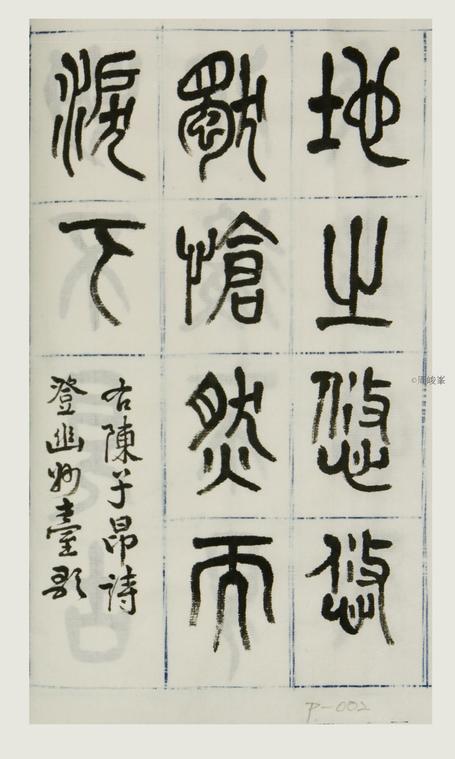 地之悠悠
獨愴然而
淚下
右陳子昂詩
登幽州臺歌
P-002